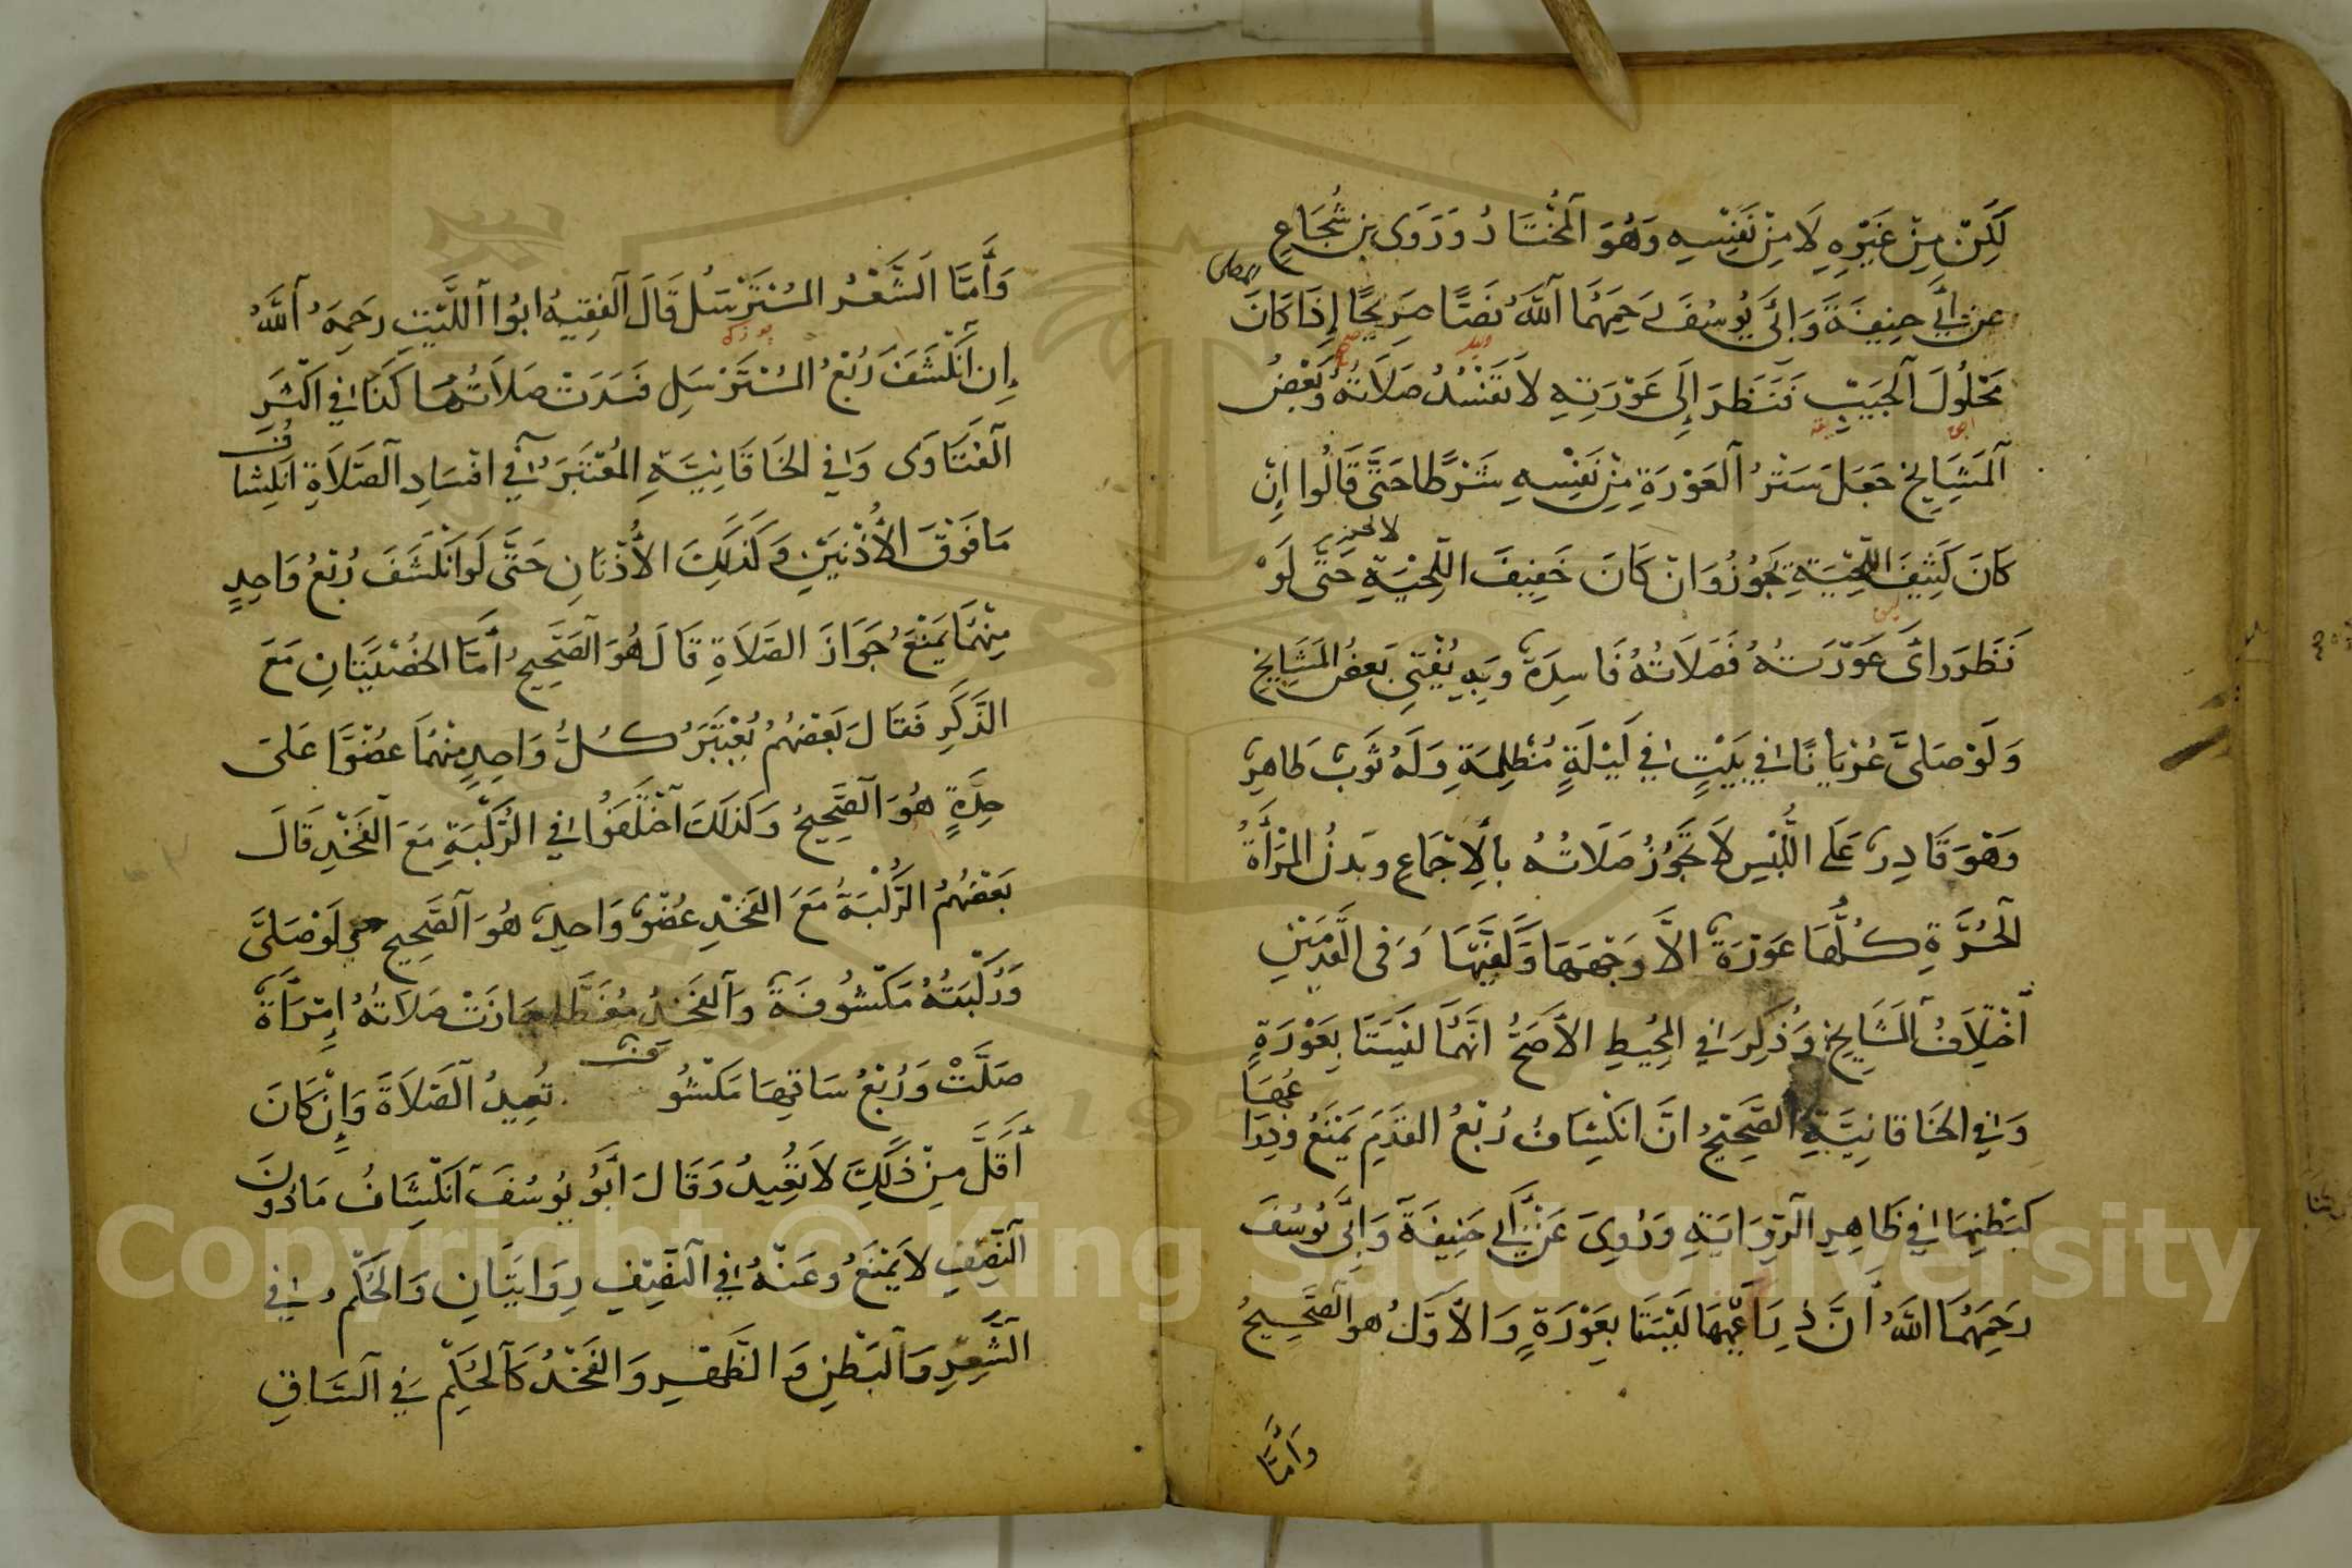 لَكِنْ مِنْ غَيْرِهِ لَا مِنْ نَفْسِهِ وَهُوَ الْمُخْتَارُ وَرَوَى بن شُجَاعٍ
عن أَبِي حنِيفَةَ وَابِي يُوسُفَ رَحِمَهُمَا اللَّهُ نَصًّا صَرِيحًا إِذَا كَانَ
مَحْلُولَ الْجَيْبِ فَنَظَرَ إِلَى عَوْرَتِهِ لَا تَفْسُدُ صَلَاتُهُ وَبَعْضُ
الْمَشَايِخِ جَعَلَ سَتْرُ الْعَوْرَةِ مِنْ نَفْسِهِ شَرْطًا حَتَّى قَالُوا اِنْ
كَانَ كَثِيفَ اللِّحْيَةِ يَجُوزُ وَانْ كَانَ خَفِيفَ اللِّحْيَةِ حَتَّى لَوْ
نَظَرَ رَأى عَوْرَتَهُ فَصَلَاتُهُ فَاسِدَةٌ وَبِهِ يُفْتِي بَعضُ الْمَشَايِخِ
وَلَوْ صَلَّى عُرْيَانًا فِي بَيْتٍ فِي لَيْلَةٍ مُظْلِمَةٍ وَلَهُ ثَوْبٌ طَاهِرٌ
وَهُوَ قَادِرٌ عَلَى اللُّبْسِ لَا تَجُوزُ صَلَاتُهُ بالْاِجْمَاعِ وبَدنُ الْمَرْأَةُ
الْحُرَّةِ كُلُّهَا عَوْرَةٌ الاَّ وَجْهَهَا وَكَفَّيْهَا وَفى الْقَدَمَيْنِ
اَخْتِلَافُ الْمَشَايِخِ وَذُكِرَ فِي الْمُحِيطِ الْاَصَحُّ اَنَّهُمَا لَيْسَتَا بِعَوْرَةٍ
وَفِي الْخَاقَانِيَّةِ الصَّحِيحُ اَنَّ انْكِشَافُ رُبْعُ الْقَدَمِ يَمْنَعُ وَذِرَاعُهَا
كَبَطْنِهَا فِي ظَاهِرِ الرِّوَايَةِ وَرُوِيَ عَنْ أَبِي حَنِيفَةَ وَابِي يُوسُفَ
رَحِمَهُمَا اللَّهُ أَنَّ ذِرَاعَيْهَا لَيْسَتَا بِعَوْرَةٍ وَالْأَوَّلُ هو الْصَّحِيحُ
وَأَمَّا
وَأَمَّا الشَّعْرُ الْمُسْتَرْسَلُ قَالَ الْفَقِيهُ ابُوا اللَّيْثِ رَحِمَهُ اللَّهُ
إِن انْكَشَفَ رُبْعُ الْمُسْتَرْسَلِ فَسَدَتْ صَلَاتُهَا كَذَا فِي اَكْثَرِ
الْفَتَاوَى وَفِي الْخَاقَانِيَّةِ الْمُعْتَبَرُ فِي افْسَادِ الصَّلَاةِ انْكِشَافُ
مَا فَوْقَ الْأُذُنَيْنِ وَكَذَلِكَ الْأُذْنَانِ حَتَّى لَوِ انْكَشَفَ رُبْعُ وَاحِدٍ
مِنْهُمَا يَمْنَعُ جَوَازَ الصَّلَاةِ قَالَ هُوَ الصَّحِيحُ أَمَّا الْخُصْيَتَانِ مَعَ
الذَّكَرِ فَقَالَ بَعْضُهُمْ يُعْتَبَرُ كُلُّ وَاحِدٍ مِنْهُمَا عضُوًا عَلَى
حِدَةٍ هُوَ الصَّحِيحُ وَكَذَلَكَ اخْتَلَفُوا فِي الرُّكْبَةِ مَعَ الْفَخْذِ قَالَ
بَعْضُهُمُ الرُّكْبَةُ مَعَ الْفَخْذِ عُضْوٌ وَاحِدٌ هُوَ الصَّحِيحِ وَلَوْ صَلَّى
وَرُكْبَتُهُ مَكْشُوفَةٌ وَالْفَخِذُ مُغَطًّى جَازَتْ صَلَاتُهُ اِمْرَأَةٌ
صَلَّتْ وَرُبْعُ سَاقِهَا مَكْشُوفٌ تُعِيدُ الصَّلَاةَ وَاِنْ كَانَ
أَقَلَّ مِنْ ذَلِكَ لَا تُعِيدُ وَقَالَ أَبُو يُوسُفَ انْكِشَافُ مَا دُونَ
النِّصْفِ لَا يَمْنَعُ وعَنْهُ فِي النِّصْفِ رِوَايَتَانِ وَالْحُكْمُ فِي
الشَّعْرِ وَالْبَطْنِ وَالظَّهْرِ وَالْفَخْذُ كَالْحُكْمِ فِي السَّاقِ
Copyright © King Saud University